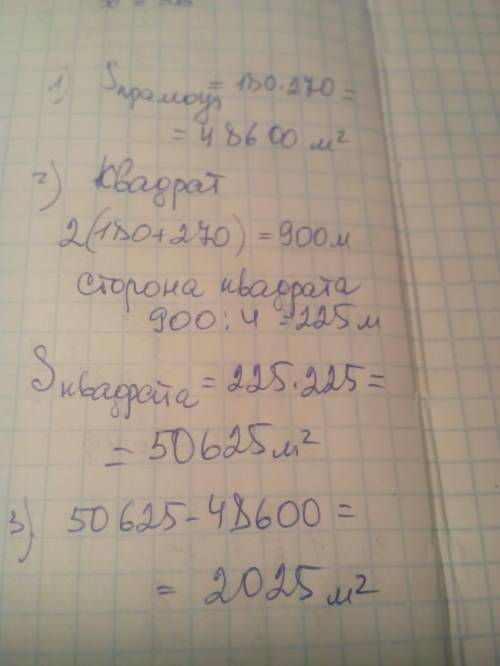 1) Sпрямоуг = 180·270 =
= 48600 м²
2) Квадрат
2(180+270) = 900м
сторона квадрата
900:4 = 225м
Sквадрата = 225·225 =
= 50625м²
3) 50625-48600 =
= 2025м²